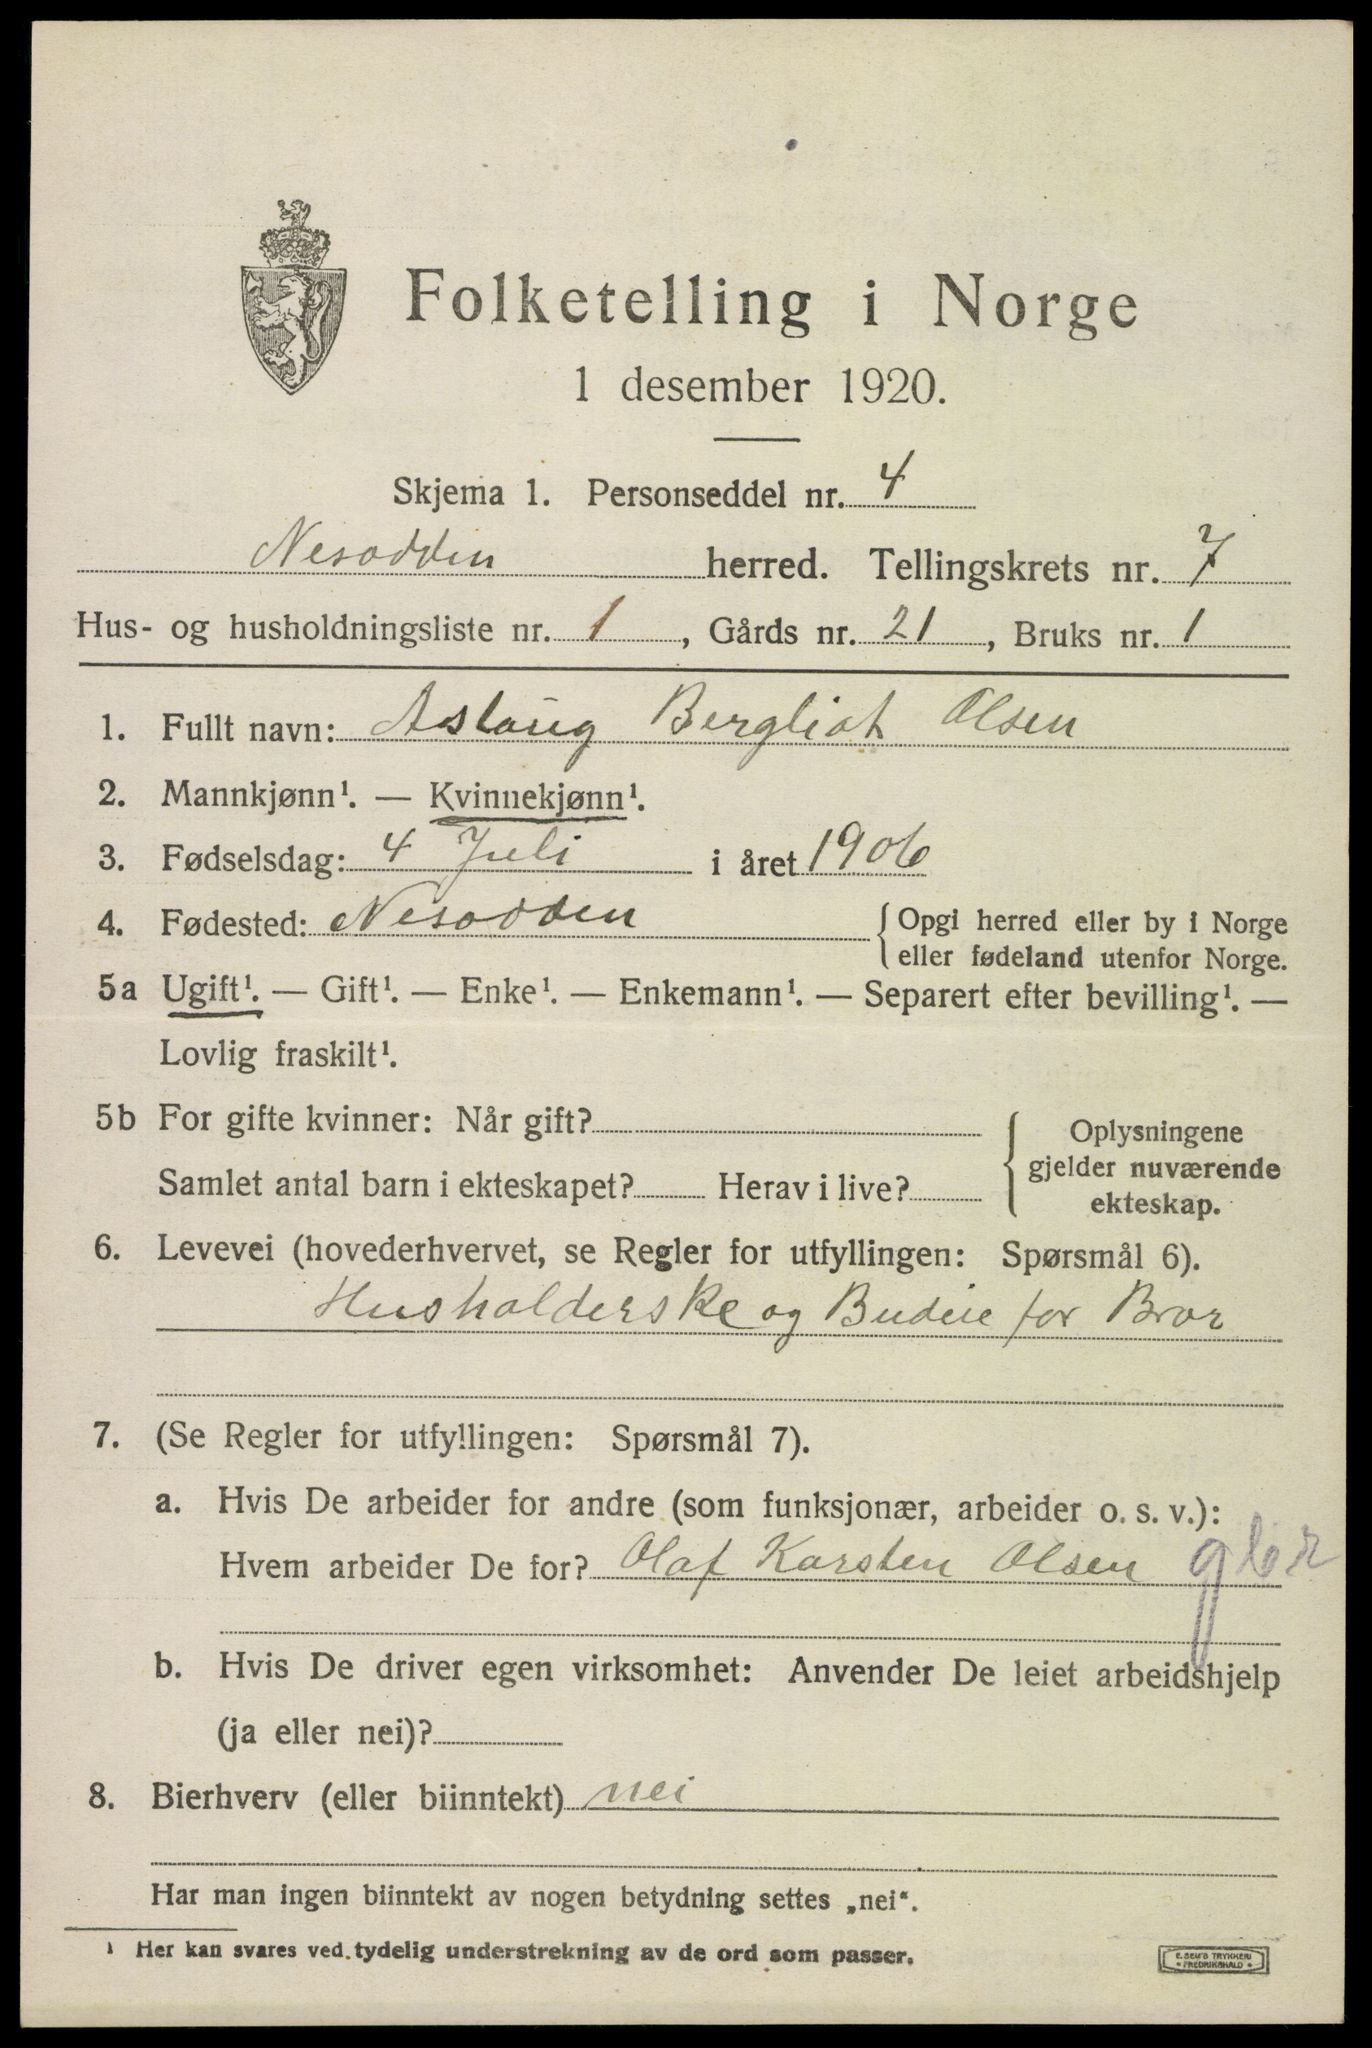 Folketelling i Norge
1 desember 1920.
Skjema 1. Personseddel nr. 4
Nesodden herred. Tellingskrets nr. 7
Hus- og husholdningsliste nr. 1, Gårds nr. 21, Bruks nr. 1
1. Fullt navn: Aslaug Bergliot Olsen
2. Mannkjønn¹. — Kvinnekjønn¹.
3. Fødselsdag: 4 Juli i året 1906
4. Fødested: Nesodden { Opgi herred eller by i Norge
eller fødeland utenfor Norge.
5a Ugift¹. — Gift¹. — Enke¹. — Enkemann¹. — Separert efter bevilling¹. —
Lovlig fraskilt¹.
5b For gifte kvinner: Når gift?
Samlet antal barn i ekteskapet? Herav i live?
{ Oplysningene
gjelder nuværende
ekteskap.
6. Levevei (hovederhvervet, se Regler for utfyllingen: Spørsmål 6).
Husholderske og Budeie for Bror
7. (Se Regler for utfyllingen: Spørsmål 7).
a. Hvis De arbeider for andre (som funksjonær, arbeider o. s. v.):
Hvem arbeider De for? Olaf Karsten Olsen
b. Hvis De driver egen virksomhet: Anvender De leiet arbeidshjelp
(ja eller nei)?
8. Bierhverv (eller biinntekt) nei
Har man ingen biinntekt av nogen betydning settes „nei“.
¹ Her kan svares ved tydelig understrekning av de ord som passer.
E. SEM'S TRYKKERI
• FREDRIKSHALD •